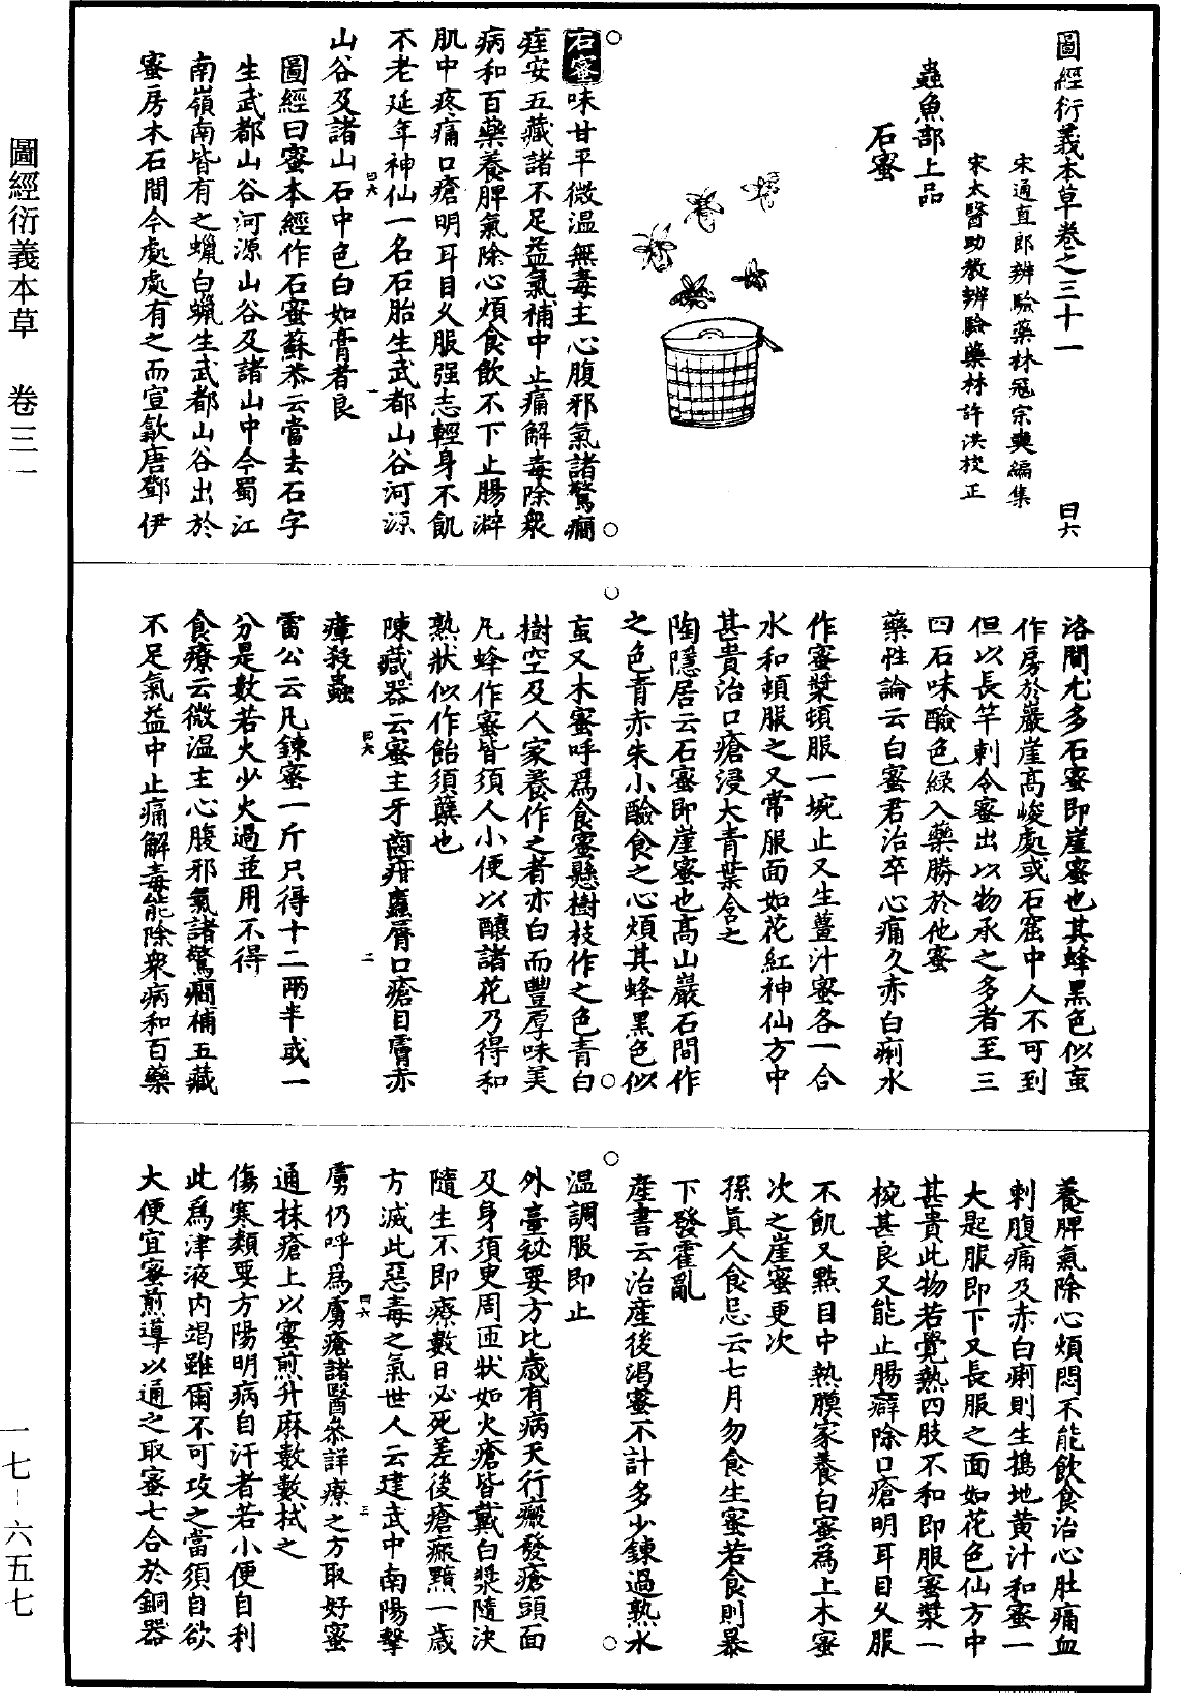 圖經衍義本草卷之三十一　曰六
宋通直郎辨驗藥材寇宗奭編集
宋太醫助教辨驗藥材許洪校正
蟲魚部上品
石蜜
石蜜味甘平微溫無毒主心腹邪氣諸驚癎
痓安五藏諸不足益氣補中止痛解毒除衆
病和百藥養脾氣除心煩食飲不下止腸澼
肌中疼痛口瘡明耳目久服强志輕身不飢
不老延年神仙一名石胎生武都山谷河源
曰六　一
山谷及諸山石中色白如膏者良
圖經曰蜜本經作石蜜蘇恭云當去石字
生武都山谷河源山谷及諸山中今蜀江
南嶺南皆有之蠟白蠟生武都山谷出於
蜜房木石間今處處有之而宣歙唐鄧伊
洛間尤多石蜜即崖蜜也其蜂黑色似䖟
作房於巖崖高峻處或石窟中人不可到
但以長竿刺令蜜出以物承之多者至三
四石味醶色綠入藥勝於他蜜
藥性論云白蜜君治卒心痛久赤白痢水
作蜜漿頓服一椀止又生薑汁蜜各一合
水和頓服之又常服面如花紅神仙方中
甚貴治口瘡浸大青葉含之
陶隱居云石蜜即崖蜜也高山巖石間作
之色青赤朱小醶食之心煩其蜂黑色似
䖟又木蜜呼爲食蜜懸樹枝作之色青白
樹空及人家養作之者亦白而豐厚味美
凡蜂作蜜皆須人小便以釀諸花乃得和
熟狀似作飴須蘖也
陳藏器云蜜主牙齒疳䘌脣口瘡目膚赤
曰六　二
瘴殺蟲
雷公云凡鍊蜜一斤只得十二兩半或一
分是數若火少火過並用不得
食療云微溫主心腹邪氣諸驚癎補五藏
不足氣益中止痛解毒能除衆病和百藥
養脾氣除心煩悶不能飲食治心肚痛血
刺腹痛及赤白痢則生搗地黃汁和蜜一
大匙服即下又長服之面如花色仙方中
甚貴此物若覺熱四肢不和即服蜜漿一
椀甚良又能止腸癖除口瘡明耳目久服
不飢又點目中熱膜家養白蜜爲上木蜜
次之崖蜜更次
孫真人食忌云七月勿食生蜜若食則暴
下發霍亂
產書云治產後渴蜜不計多少鍊過熟水
溫調服即止
外臺祕要方比歲有病天行瘢發瘡頭面
及身須更周匝狀如火瘡皆戴白漿隨決
隨生不即療數日必死差後瘡瘢黯一歲
方滅此惡毒之氣世人云建武中南陽擊
曰六　三
虜仍呼爲虜瘡諸醫叅詳療之方取好蜜
通抹瘡上以蜜煎升麻數數拭之
傷寒類要方陽明病自汗者若小便自利
此爲津液內竭雖爾不可攻之當須自欲
大便宜蜜煎導以通之取蜜七合於銅器
圖經衍義本草　卷三一
一七－六五七